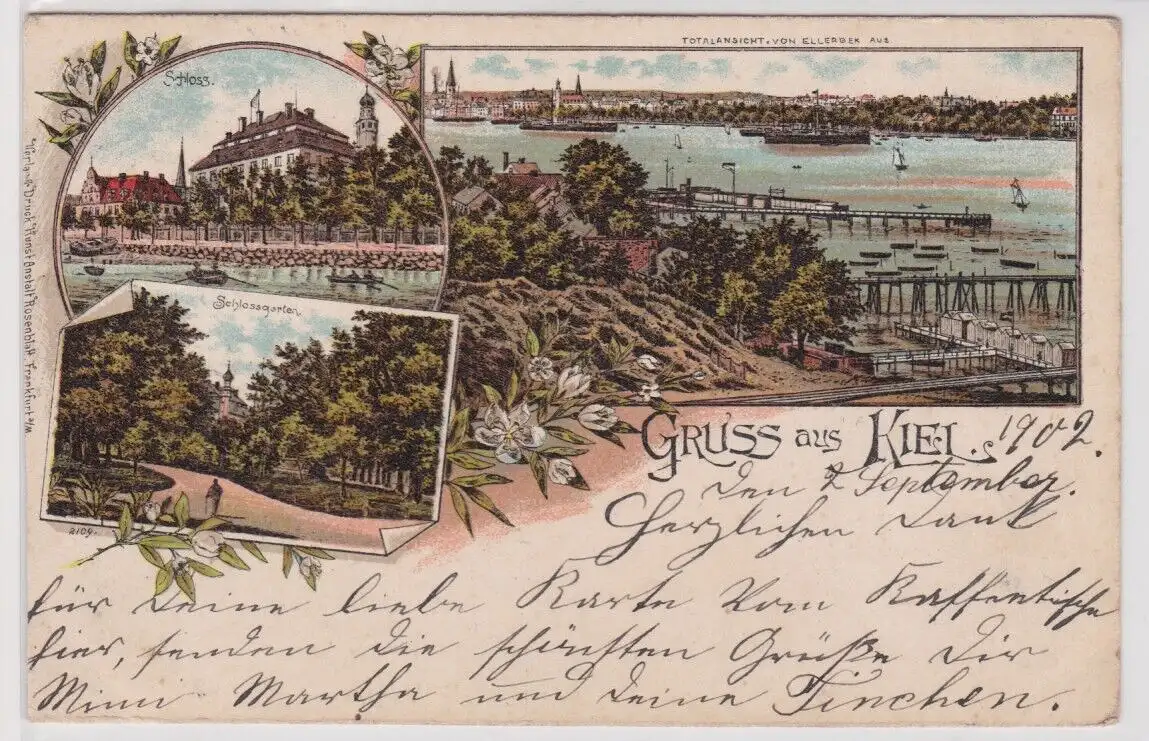 TOTALANSICHT. VON ELLERBEK AUS.
Schloss.
Schlossgarten.
Verlag u. Druck Kunst Anstalt Rosenblatt, Frankfurt a/M.
2109.
GRUSS aus KIEL. 1902.
den 7 September.
Herzlichen Dank
für deine liebe Karte vom Kaffeetische
hier, senden die schönsten Grüße Dir
Mimi Martha und deine Tinchen.